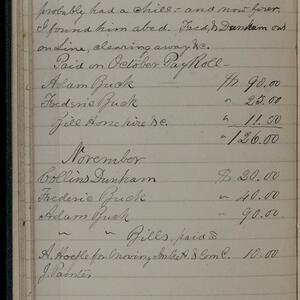 probably had a chill - and now fever.
I found him abed. Fred, & Dunham out
on Line, clearing away &c.
Paid on October Pay Roll -
Adam Buck $ 90.00
Frederic Buck " 25.00
Bill Horse hire &c. " 11.00
" 126.00
November
Collins Dunham $ 20.00
Frederic Buck " 40.00
Adam Buck " 90.00
" " Bills, paid
A. Hoctle for moving A. & Com. C. 10.00
J. Painter